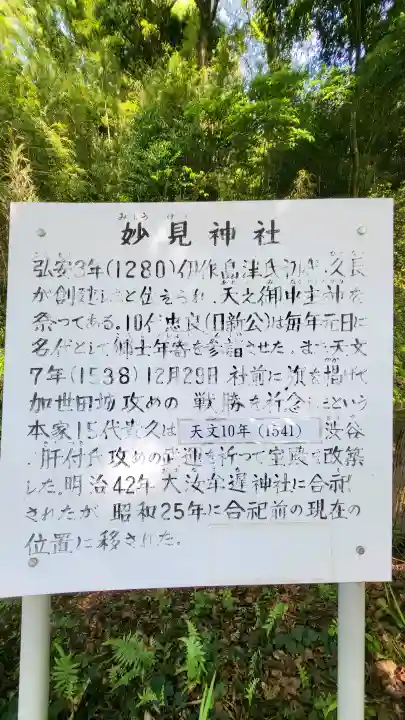 みょう けん
妙見神社
弘安3年(1280)伊作島津氏初代 久長
が創建したと伝えられ、天之御中主神を
祭つてある。10代忠良(日新公)は毎年元日に
名代として郷士年寄を参詣させた。また天文
7年(1538)12月29日 社前に旗を掲げて
加世田城攻めの 戦勝を祈念したという
本家15代貴久は 天文10年(1541) 渋谷
、肝付氏攻めの武運を祈つて宝殿を改築
した。明治42年 大汝牟遅神社に合祀
されたが 昭和25年に合祀前の現在の
位置に移された。